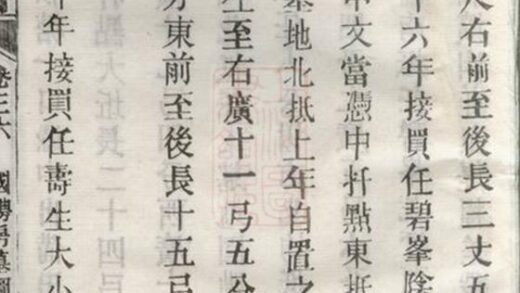 尺右前至後長三丈五
十六年接買任碧峯陰
文當憑中扦點東抵
墓地北抵上年自置之
至右廣十一弓五分
東前至後長十五弓
年接買任壽生大小
卷之六 國勝房墓圖